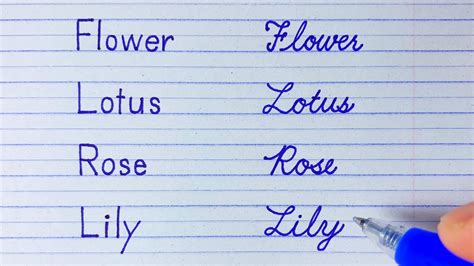 Flower Flower
Lotus Lotus
Rose Rose
Lily Lily